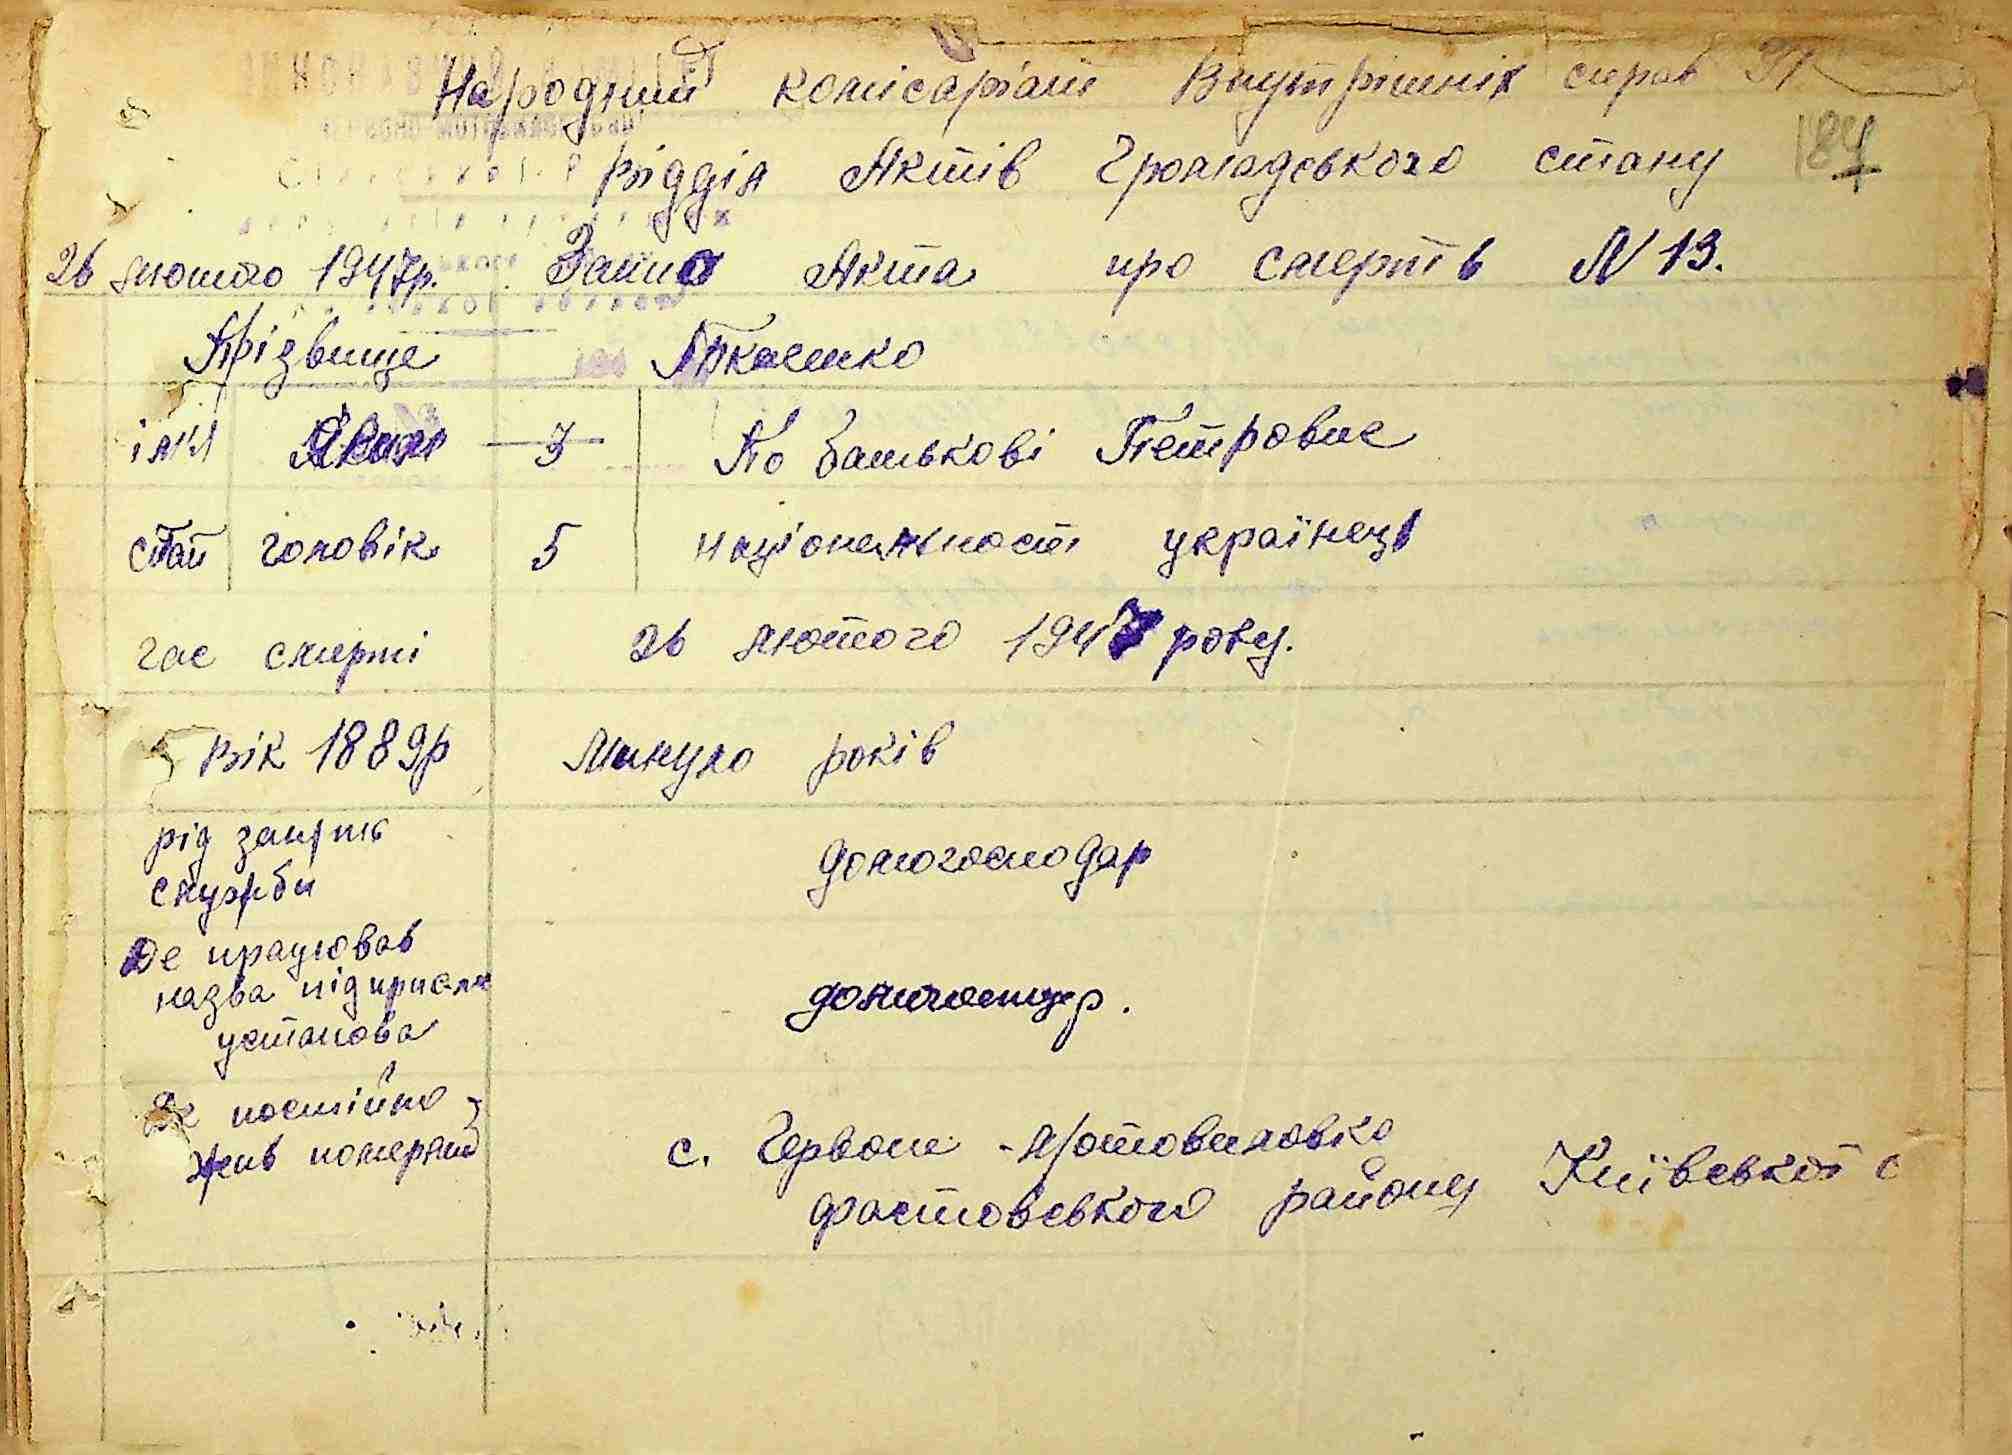 Народний комісаріат Внутрішніх справ
184
Відділ Актів Громадського стану
26 лютого 1947р. Запис Акта про смерть N 13.
Прізвище Ткаченко
імя Яким 3 По батькові Петрович
стать чоловік 5 національность українець
час смерті 26 лютого 1947 року.
Вік 1889р Минуло років
рід занять
служби
домогосподар
Де працював
назва підприєм
установа
домогоспдр.
Де постійно
жив померший
с. Червоне-Мотовиловка
Фастовського району Київської о